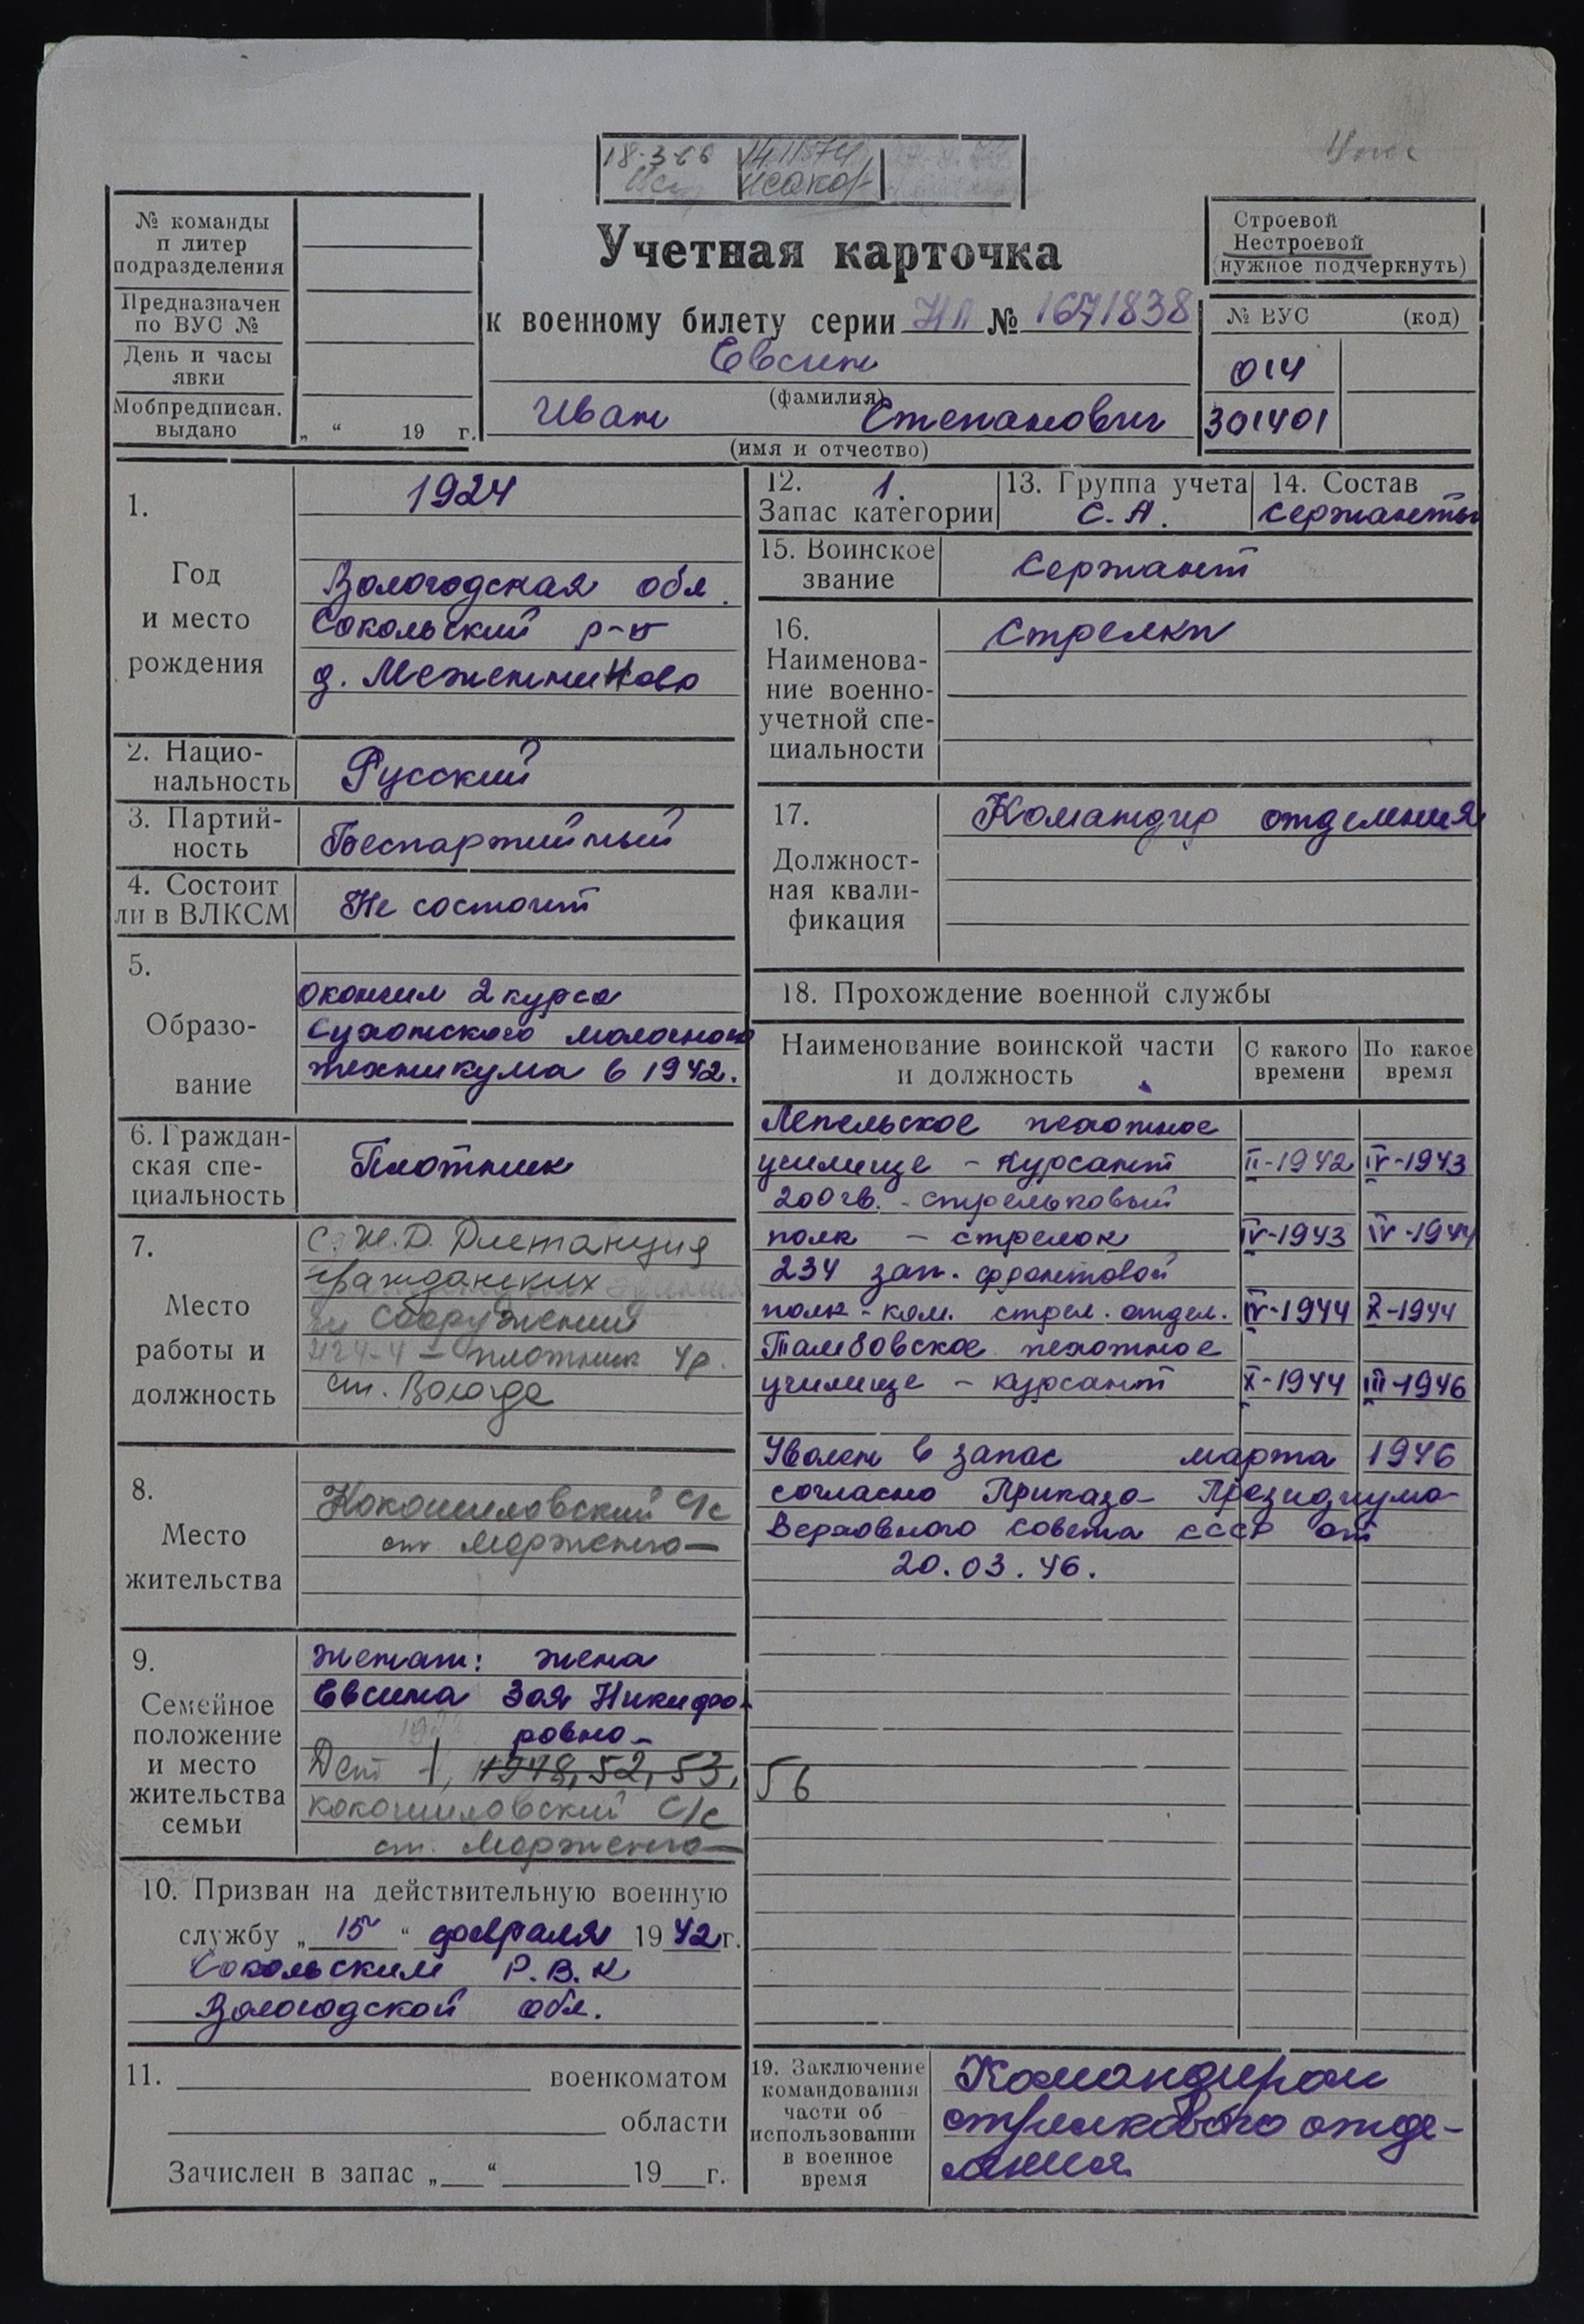 18-3-66 14.11.74
Исаков
№ команды
п литер
подразделения
Предназначен
по ВУС №
День и часы
явки
Мобпредписан.
выдано
„ “ 19 г.
Учетная карточка
к военному билету серии НЛ № 1671838
Евсин
(фамилия)
Иван Степанович
(имя и отчество)
Строевой
Нестроевой
(нужное подчеркнуть)
№ ВУС (код)
014
301401
1.
Год
и место
рождения
1924
Вологодская обл.
Сокольский р-н
д. Меженниково
2. Нацио-
нальность
Русский
3. Партий-
ность
Беспартийный
4. Состоит
ли в ВЛКСМ
Не состоит
5.
Образо-
вание
окончил 2 курса
Сухонского молочного
техникума в 1942.
6. Граждан-
ская спе-
циальность
Плотник
7.
Место
работы и
должность
С.Ж.Д. Дистанция
гражданских
сооружений
плотник 4р.
ст. Вологда
8.
Место
жительства
Кокошиловский с/с
ст. Морженга
9.
Семейное
положение
и место
жительства
семьи
женат: жена
Евсина Зоя Никифо-
ровна
Дети 1, 1948, 52, 53, 56
Кокошиловский с/с
ст. Морженга
10. Призван на действительную военную
службу „15“ февраля 1942 г.
Сокольским Р.В.К
Вологодской обл.
11. военкоматом
области
Зачислен в запас „ “ 19 г.
12. 1.
Запас категории
13. Группа учета
С.А.
14. Состав
сержанты
15. Воинское
звание
Сержант
16.
Наименова-
ние военно-
учетной спе-
циальности
Стрелки
17.
Должност-
ная квали-
фикация
Командир отделения
18. Прохождение военной службы
Наименование воинской части
и должность
С какого
времени
По какое
время
Лепельское пехотное
училище - курсант II-1942 IV-1943
200 гв. - стрельковый
полк - стрелок IV-1943 IV-1944
234 зап. фронтовой
полк - ком. стрел. отдел. IV-1944 X-1944
Тамбовское пехотное
училище - курсант X-1944 III-1946
Уволен в запас марта 1946
согласно Приказа Президиума
Верховного Совета СССР от
20.03.46.
19. Заключение
командования
части об
использовании
в военное
время
Командиром
стрелкового отде-
ления